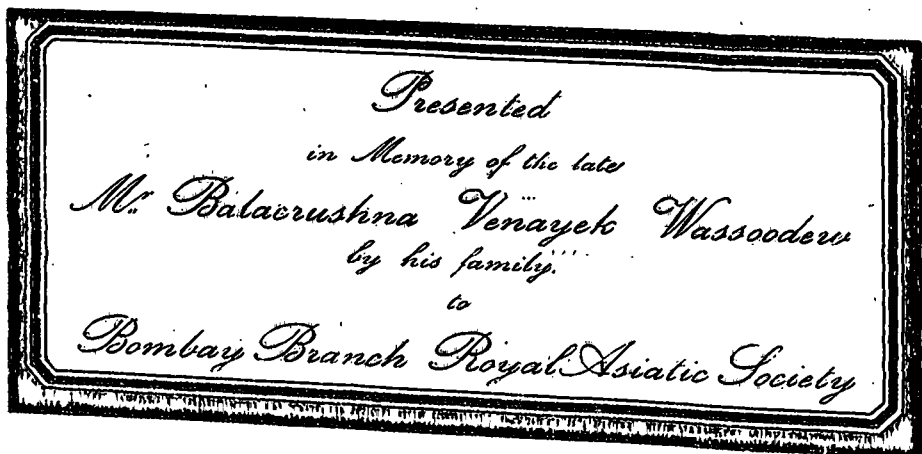 Presented
in Memory of the late
Mr. Balacrushna Venayek Wassoodew
by his family.
to
Bombay Branch Royal Asiatic Society